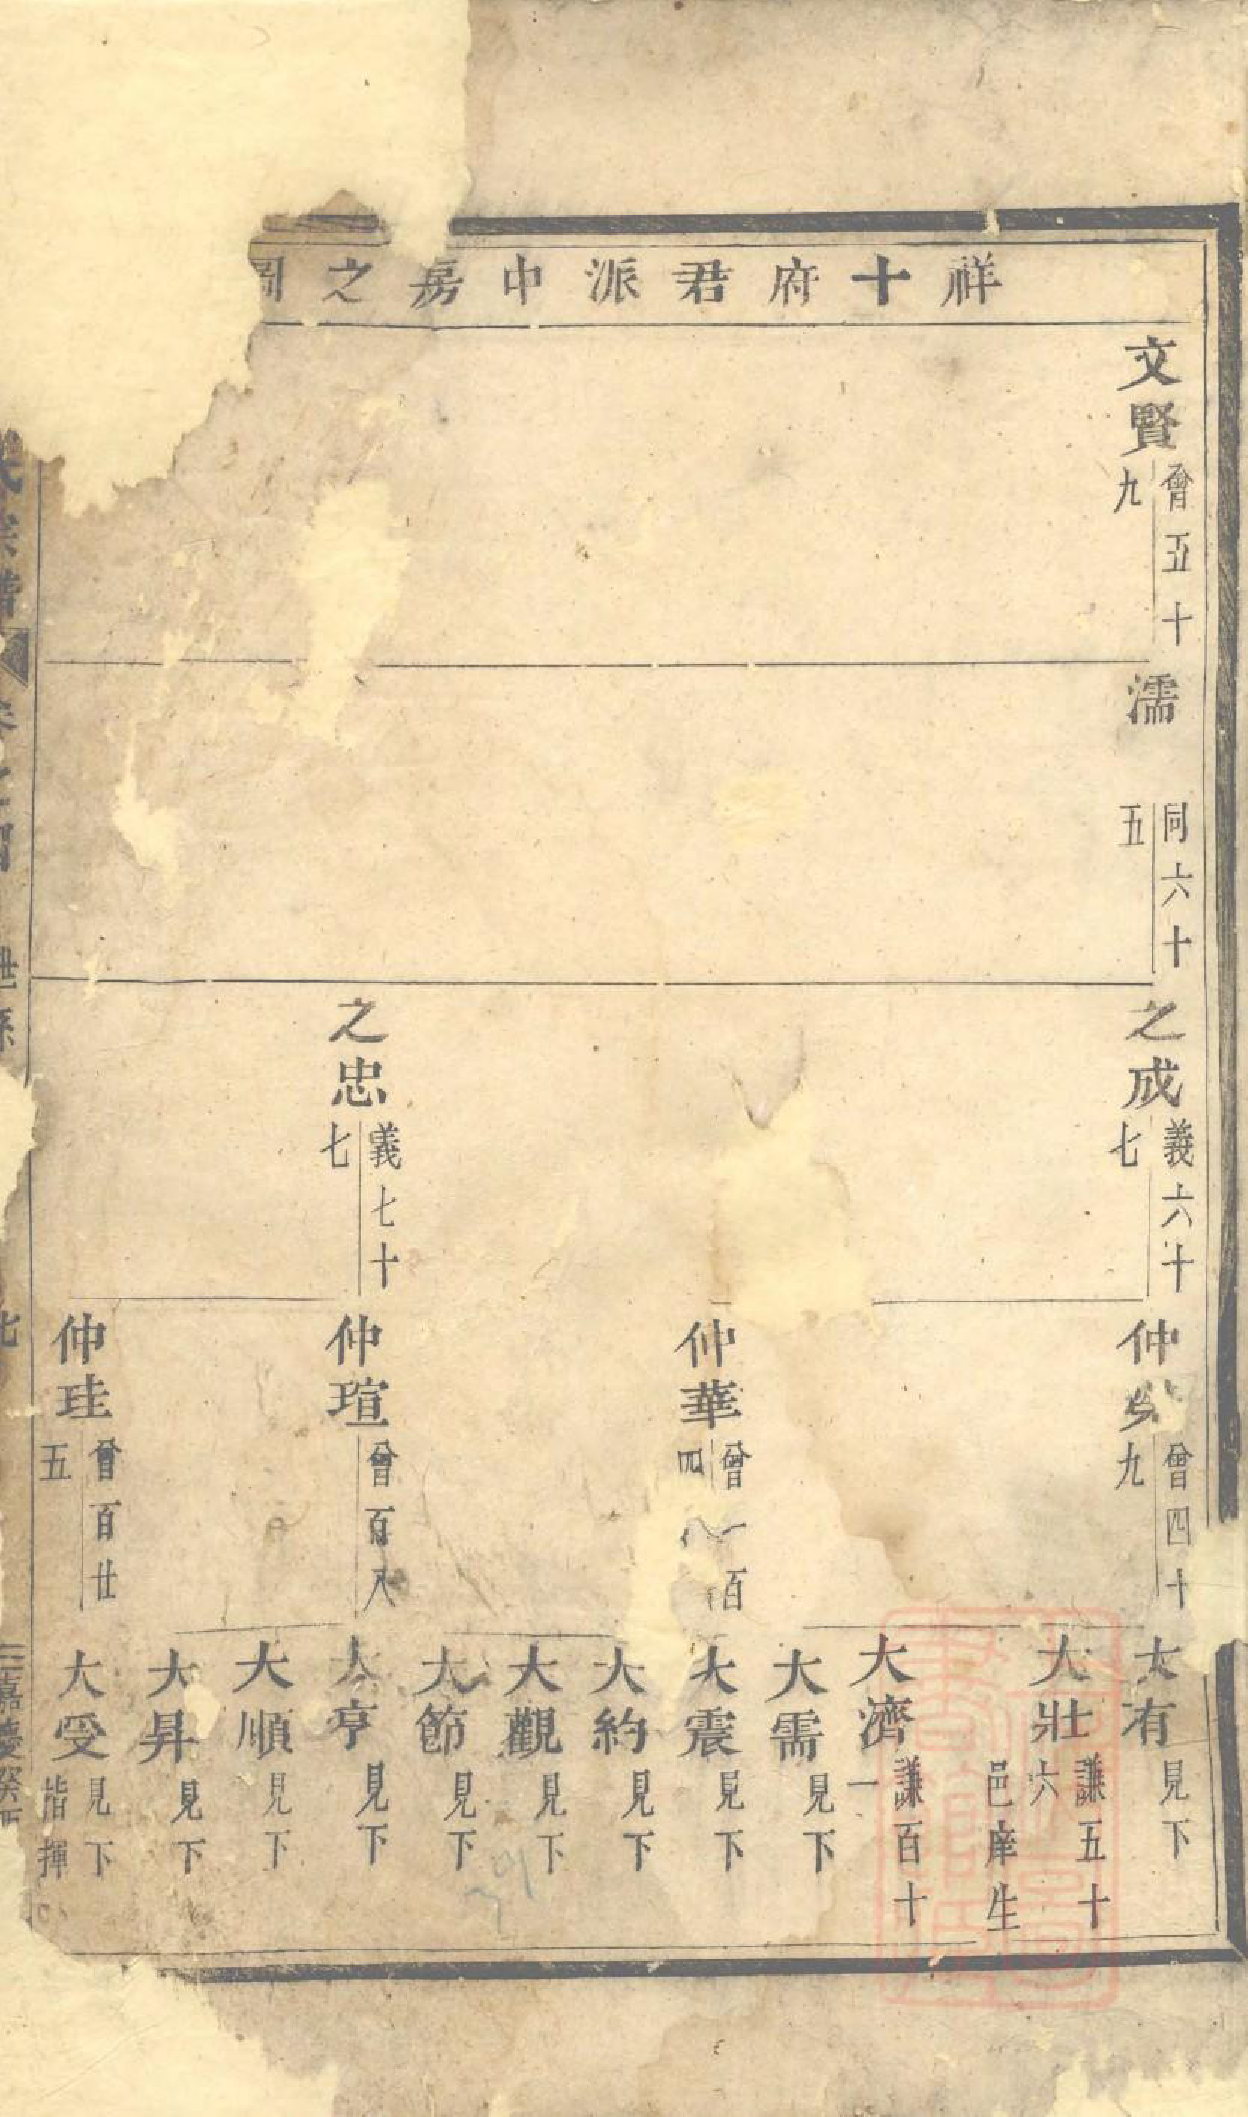 祥十府君派中房之圖
文賢 會五十九
濡 同六十五
之成 義六十七
之忠 義七十七
仲 曾四十九
仲華 曾一百四
仲瑄 曾百八
仲珪 曾百廿五
大有 見下
大壯 謙五十六 邑庠生
大濟 謙百十一
大需 見下
大震 見下
大約 見下
大觀 見下
大節 見下
大亨 見下
大順 見下
大昇 見下
大受 見下 指揮
氏宗譜 卷之 世系
嘉慶癸酉